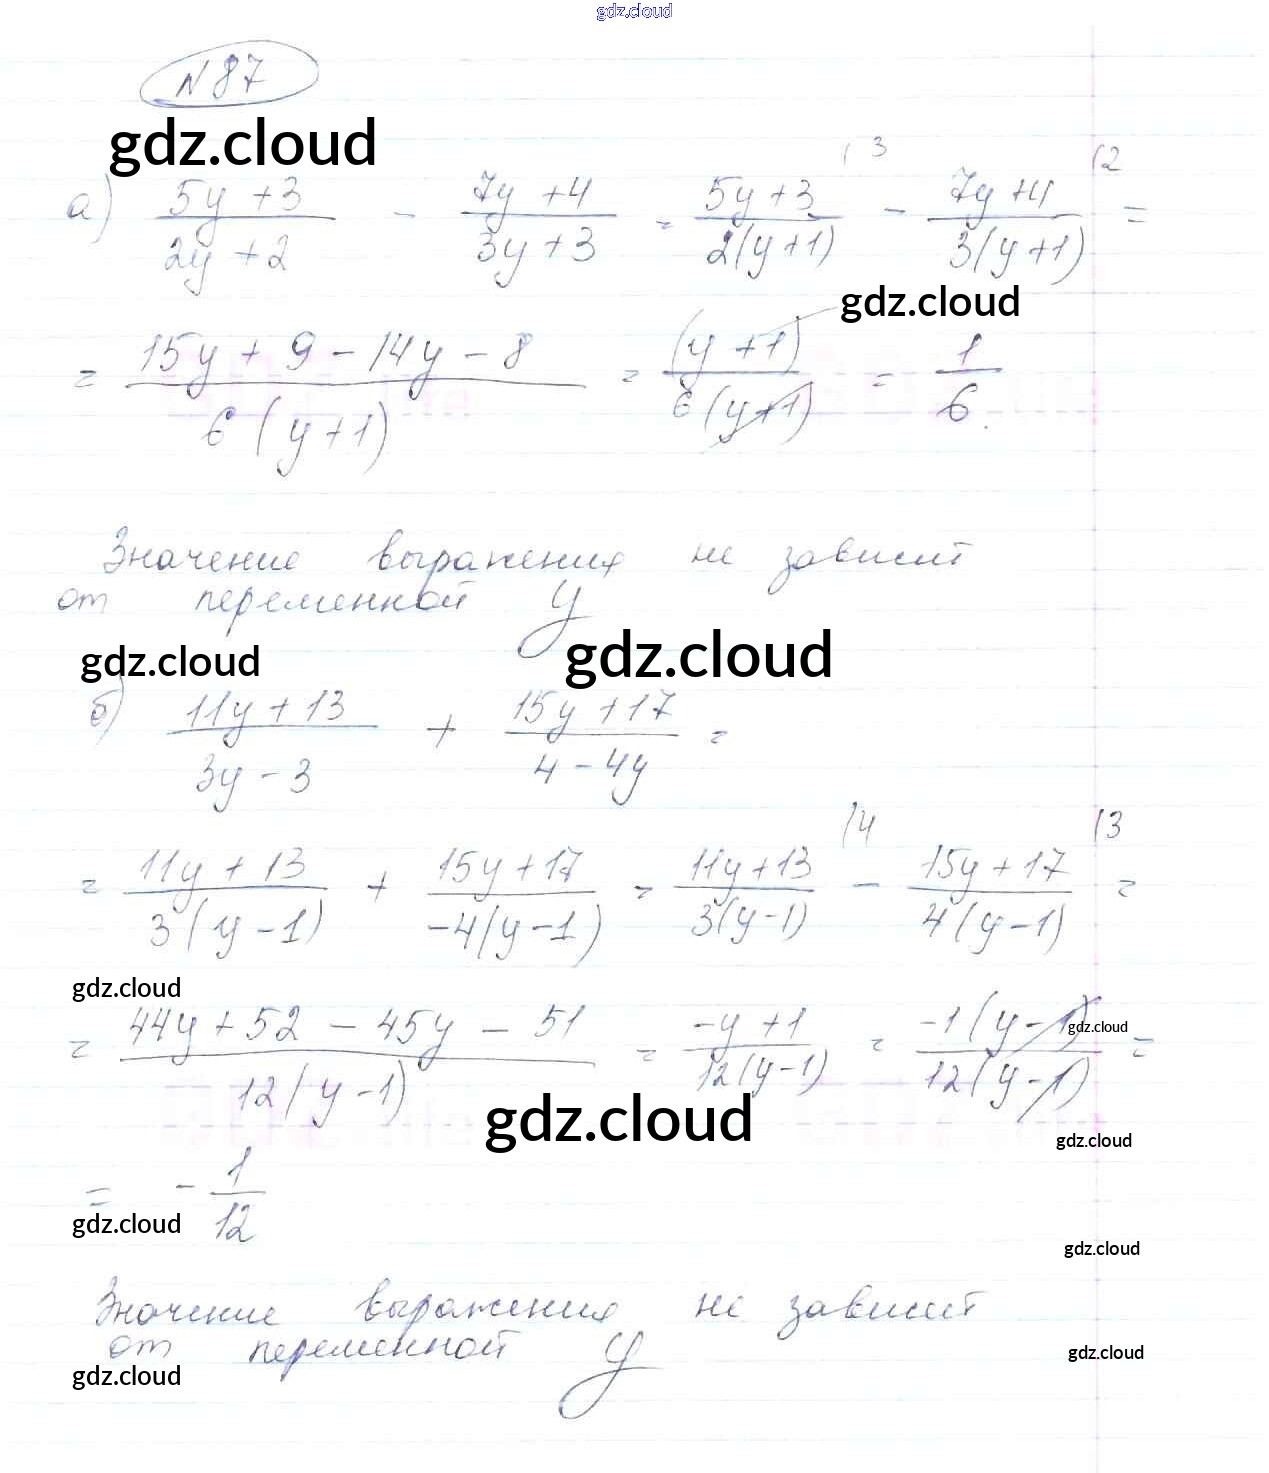 gdz.cloud
N 87
gdz.cloud
а) (5y + 3)/(2y + 2) - (7y + 4)/(3y + 3) = (5y + 3)/(2(y+1)) (3 - (7y + 4)/(3(y+1)) (2 =
gdz.cloud
= (15y + 9 - 14y - 8)/(6(y+1)) = (y + 1)/(6(y+1)) = 1/6.
Значение выражения не зависит
от переменной y
gdz.cloud gdz.cloud
б) (11y + 13)/(3y - 3) + (15y + 17)/(4 - 4y) =
= (11y + 13)/(3(y - 1)) + (15y + 17)/(-4(y - 1)) = (11y + 13)/(3(y - 1)) (4 - (15y + 17)/(4(y - 1)) (3 =
gdz.cloud
= (44y + 52 - 45y - 51)/(12(y - 1)) = (-y + 1)/(12(y - 1)) = (-1(y - 1))/(12(y - 1)) =
gdz.cloud
gdz.cloud
gdz.cloud
= - 1/12
gdz.cloud
gdz.cloud
Значение выражения не зависит
от переменной y
gdz.cloud
gdz.cloud